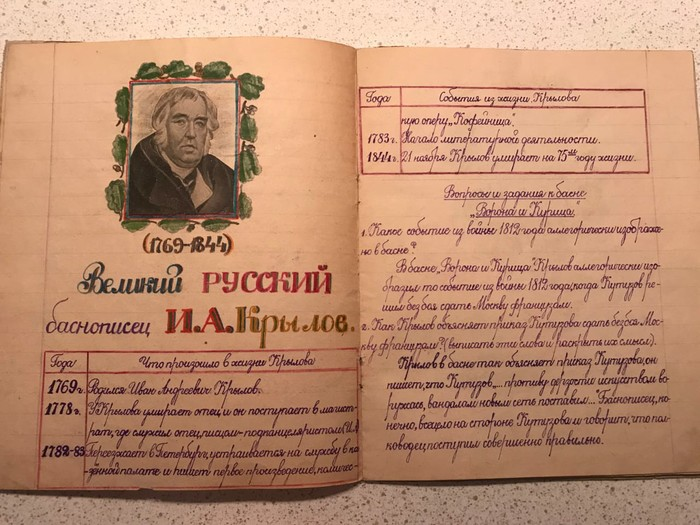 (1769-1844)
Великий РУССКИЙ
баснописец И.А.Крылов.
Года Что произошло в жизни Крылова
1769г. Родился Иван Андреевич Крылов.
1778г. У Крылова умирает отец и он поступает в магист-
рат, где служил отец, писцом-подканцеляристом
1782-83 Переезжает в Петербург, устраивается на службу в ка-
зённой палате и пишет первое произведение, комичес-
Года События из жизни Крылова
кую оперу „Кофейница".
1783г. Начало литературной деятельности.
1844г. 21 ноября Крылов умирает на 75ом году жизни.
Вопросы и задания к басне
„Ворона и Курица".
1. Какое событие из войны 1812 года аллегорически изображе-
но в басне?
В басне „Ворона и Курица" Крылов аллегорически изо-
бразил то событие из войны 1812 года, когда Кутузов ре-
шил без боя сдать Москву французам.
2. Как Крылов объясняет приказ Кутузова сдать без боя Мос-
кву французам? (выписать эти слова и раскрыть их смысл).
Крылов в басне так объясняет приказ Кутузова, он
пишет, что Кутузов „... противу дерзости искусством во-
оружась, вандалам новым сеть поставил..." Баснописец, ко-
нечно, всецело на стороне Кутузова и говорит, что пол-
ководец поступил совершенно правильно.